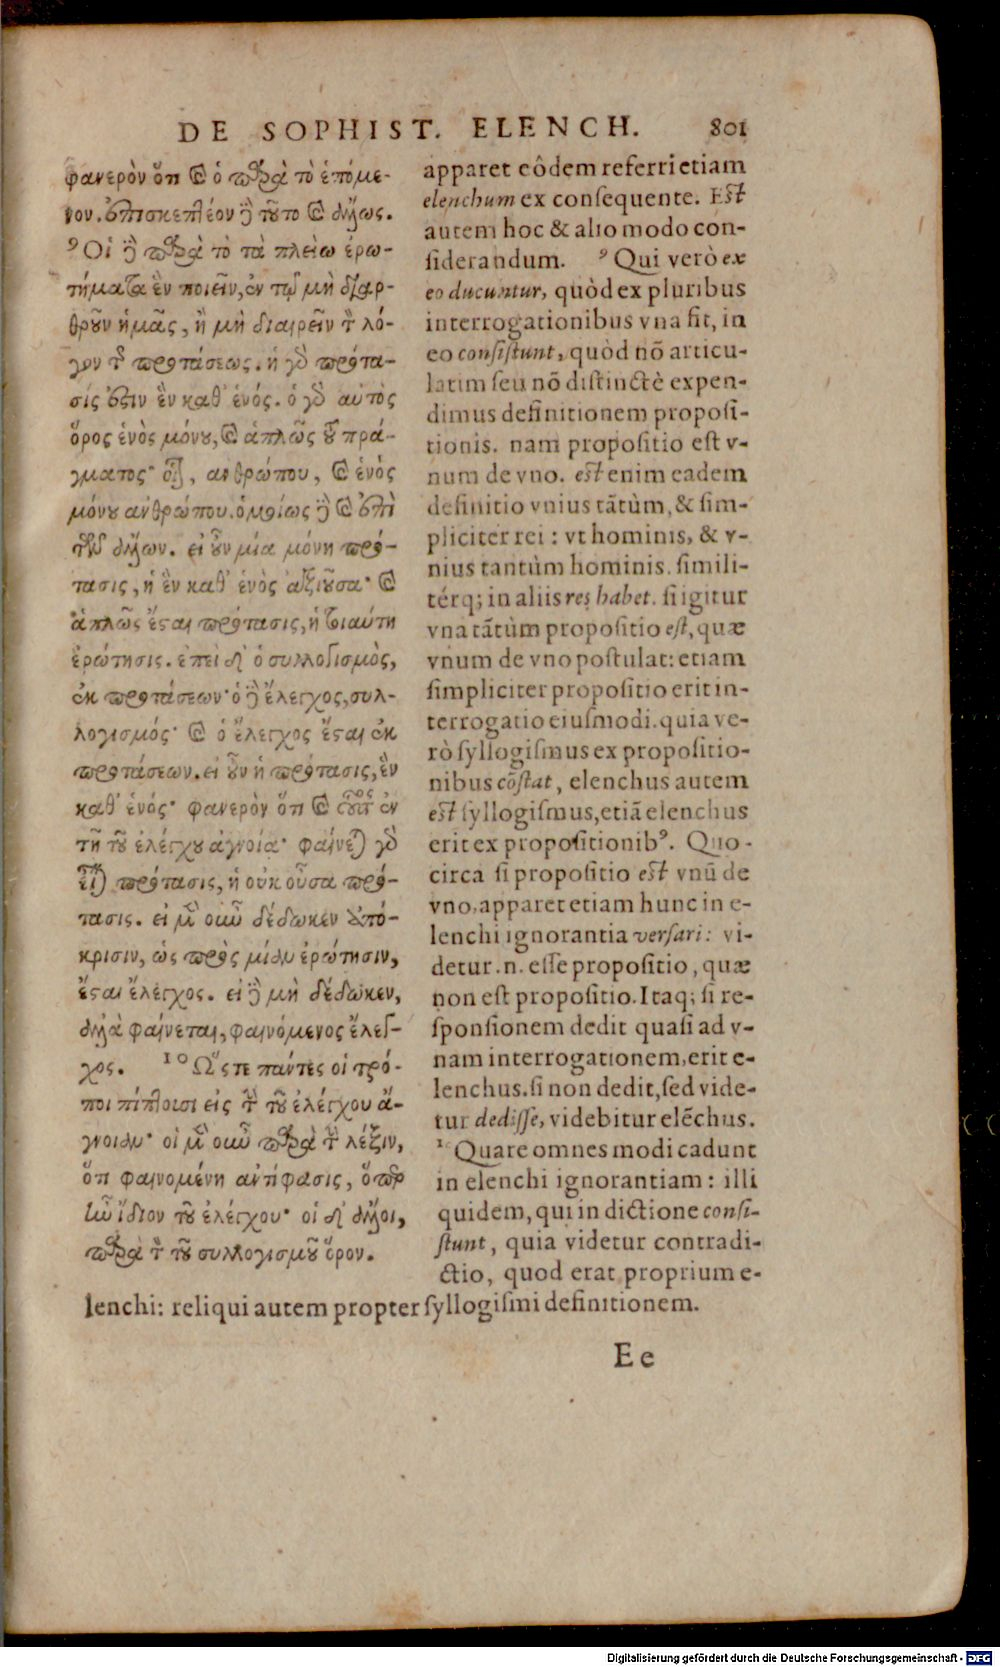 DE SOPHIST. ELENCH. 801
φανερὸν ὅτι καὶ ὁ παρὰ τὸ ἑπόμε-
νον. ἐπισκεπτέον δὲ τοῦτο καὶ ἄλλως.
⁹ Οἱ δὲ παρὰ τὸ τὰ πλείω ἐρω-
τήματα ἓν ποιεῖν, ἐν τῷ μὴ διαρ-
θροῦν ἡμᾶς, ἢ μὴ διαιρεῖν τὸν λό-
γον τῆς προτάσεως. ἡ γὰρ πρότα-
σίς ἐστιν ἓν καθ' ἑνός. ὁ γὰρ αὐτὸς
ὅρος ἑνὸς μόνου, καὶ ἁπλῶς τοῦ πρά-
γματος· οἷον, ἀνθρώπου, καὶ ἑνὸς
μόνου ἀνθρώπου. ὁμοίως δὲ καὶ ἐπὶ
τῶν ἄλλων. εἰ οὖν μία μόνη πρό-
τασις, ἡ ἓν καθ' ἑνὸς ἀξιοῦσα· καὶ
ἁπλῶς ἔσται πρότασις, ἡ τοιαύτη
ἐρώτησις. ἐπεὶ δ' ὁ συλλογισμὸς,
ἐκ προτάσεων· ὁ δὲ ἔλεγχος, συλ-
λογισμός· καὶ ὁ ἔλεγχος ἔσται ἐκ
προτάσεων. εἰ οὖν ἡ πρότασις, ἓν
καθ' ἑνός· φανερὸν ὅτι καὶ οὗτος ἐν
τῇ τοῦ ἐλέγχου ἀγνοίᾳ· φαίνεται γὰρ
εἶναι πρότασις, ἡ οὐκ οὖσα πρό-
τασις. εἰ μὲν οὖν δέδωκεν ἀπό-
κρισιν, ὡς πρὸς μίαν ἐρώτησιν,
ἔσται ἔλεγχος. εἰ δὲ μὴ δέδωκεν,
ἀλλὰ φαίνεται, φαινόμενος ἔλεγ-
χος. ¹⁰ Ὥστε πάντες οἱ τρό-
ποι πίπτουσι εἰς τὴν τοῦ ἐλέγχου ἄ-
γνοιαν· οἱ μὲν οὖν παρὰ τὴν λέξιν,
ὅτι φαινομένη ἀντίφασις, ὅπερ
ἦν ἴδιον τοῦ ἐλέγχου· οἱ δ' ἄλλοι,
παρὰ τὸν τοῦ συλλογισμοῦ ὅρον.
apparet eôdem referri etiam
elenchum ex consequente. Est
autem hoc & alio modo con-
siderandum. ⁹ Qui verò ex
eo ducuntur, quòd ex pluribus
interrogationibus vna fit, in
eo consistunt, quòd nō articu-
latim seu nō distinctè expen-
dimus definitionem proposi-
tionis. nam propositio est v-
num de vno. est enim eadem
definitio vnius tātùm, & sim-
pliciter rei : vt hominis, & v-
nius tantùm hominis. simili-
térq; in aliis res habet. si igitur
vna tātùm propositio est, quæ
vnum de vno postulat: etiam
simpliciter propositio erit in-
terrogatio eiusmodi. quia ve-
rò syllogismus ex propositio-
nibus cōstat, elenchus autem
est syllogismus, etiā elenchus
erit ex propositionibꝰ. Quo-
circa si propositio est vnū de
vno, apparet etiam hunc in e-
lenchi ignorantia versari: vi-
detur .n. esse propositio, quæ
non est propositio. Itaq; si re-
sponsionem dedit quasi ad v-
nam interrogationem, erit e-
lenchus. si non dedit, sed vide-
tur dedisse, videbitur elēchus.
¹⁰ Quare omnes modi cadunt
in elenchi ignorantiam : illi
quidem, qui in dictione consi-
stunt, quia videtur contradi-
ctio, quod erat proprium e-
lenchi: reliqui autem propter syllogismi definitionem.
Ee
Digitalisierung gefördert durch die Deutsche Forschungsgemeinschaft - DFG